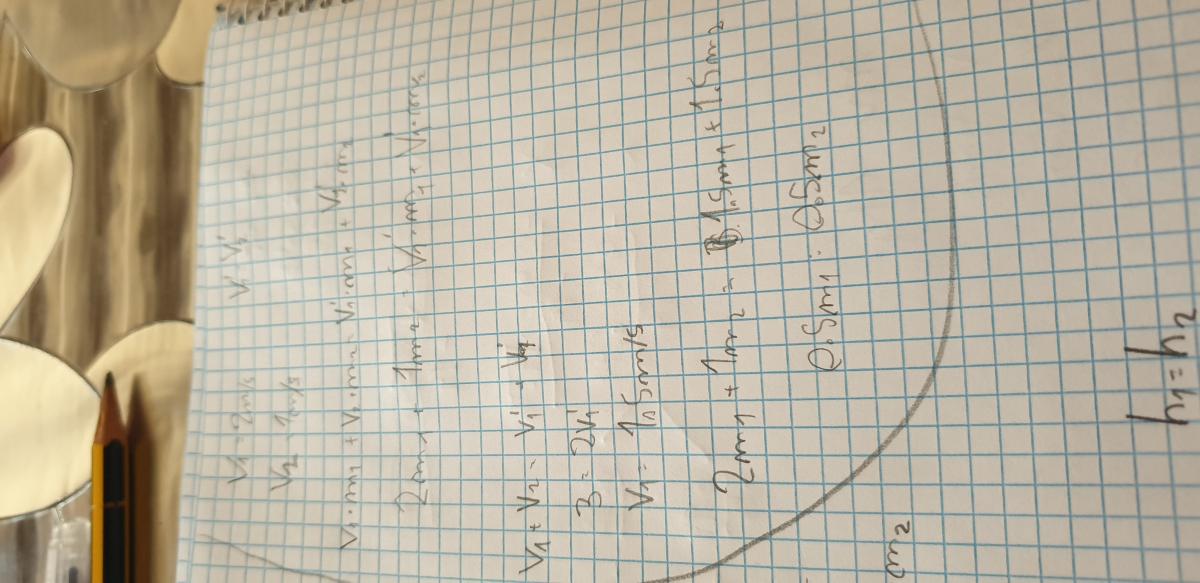 V1 = 2m/s V1' V1'
V2 = 1m/s
V1·m1 + V2·m2 = V1'·m1 + V1'·m2
2m1 + 1m2 = V1'·m1 + V1'·m2
V1 + V2 = V1' + V1'
3 = 2V1'
V1 = 1,5m/s
2m1 + 1m2 = 1,5m1 + 1,5m2
0,5m1 = 0,5m2
m2
h1 = h2